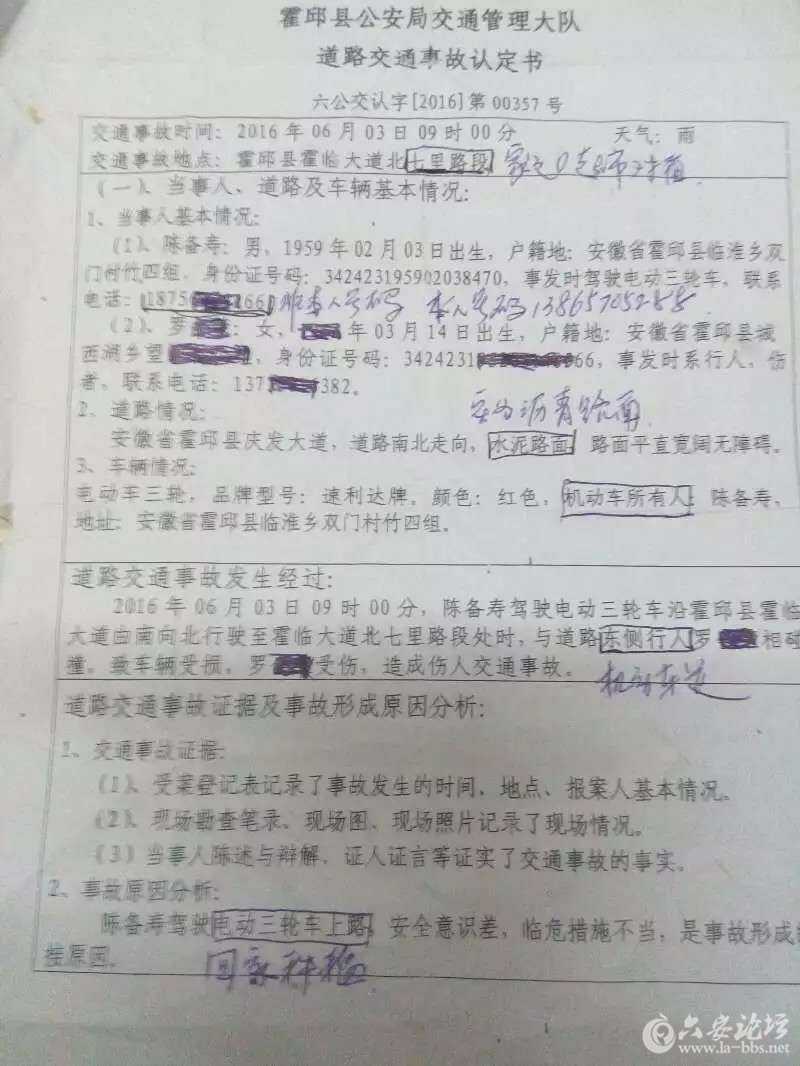 霍邱县公安局交通管理大队
道路交通事故认定书
六公交认字[2016]第 00357 号
交通事故时间：2016 年 06 月 03 日 09 时 00 分 天气：雨
交通事故地点：霍邱县霍临大道北七里路段
（一）、当事人、道路及车辆基本情况：
1、当事人基本情况：
（1）、陈备寿：男，1959 年 02 月 03 日出生，户籍地：安徽省霍邱县临淮乡双
门村竹四组，身份证号码：342423195902038470，事发时驾驶电动三轮车，联系
电话：1875 266 非本人号码 本人号码13865705288
（2）、罗 ：女， 年 03 月 14 日出生，户籍地：安徽省霍邱县城
西湖乡望 ，身份证号码：3424231 066，事发时系行人，伤
者，联系电话：137 382。
2、道路情况： 实为沥青路面
安徽省霍邱县庆发大道，道路南北走向，水泥路面，路面平直宽阔无障碍。
3、车辆情况：
电动车三轮，品牌型号：速利达牌，颜色：红色，机动车所有人：陈备寿，
地址：安徽省霍邱县临淮乡双门村竹四组。
道路交通事故发生经过：
2016 年 06 月 03 日 09 时 00 分，陈备寿驾驶电动三轮车沿霍邱县霍临
大道由南向北行驶至霍临大道北七里路段处时，与道路东侧行人罗 相碰
撞。致车辆受损，罗 受伤，造成伤人交通事故。
机动车道
道路交通事故证据及事故形成原因分析：
1、交通事故证据：
（1）、受案登记表记录了事故发生的时间、地点、报案人基本情况。
（2）、现场勘查笔录、现场图、现场照片记录了现场情况。
（3）当事人陈述与辩解、证人证言等证实了交通事故的事实。
2、事故原因分析：
陈备寿驾驶电动三轮车上路，安全意识差，临危措施不当，是事故形成的
原因。
六安论坛
www.la-bbs.net